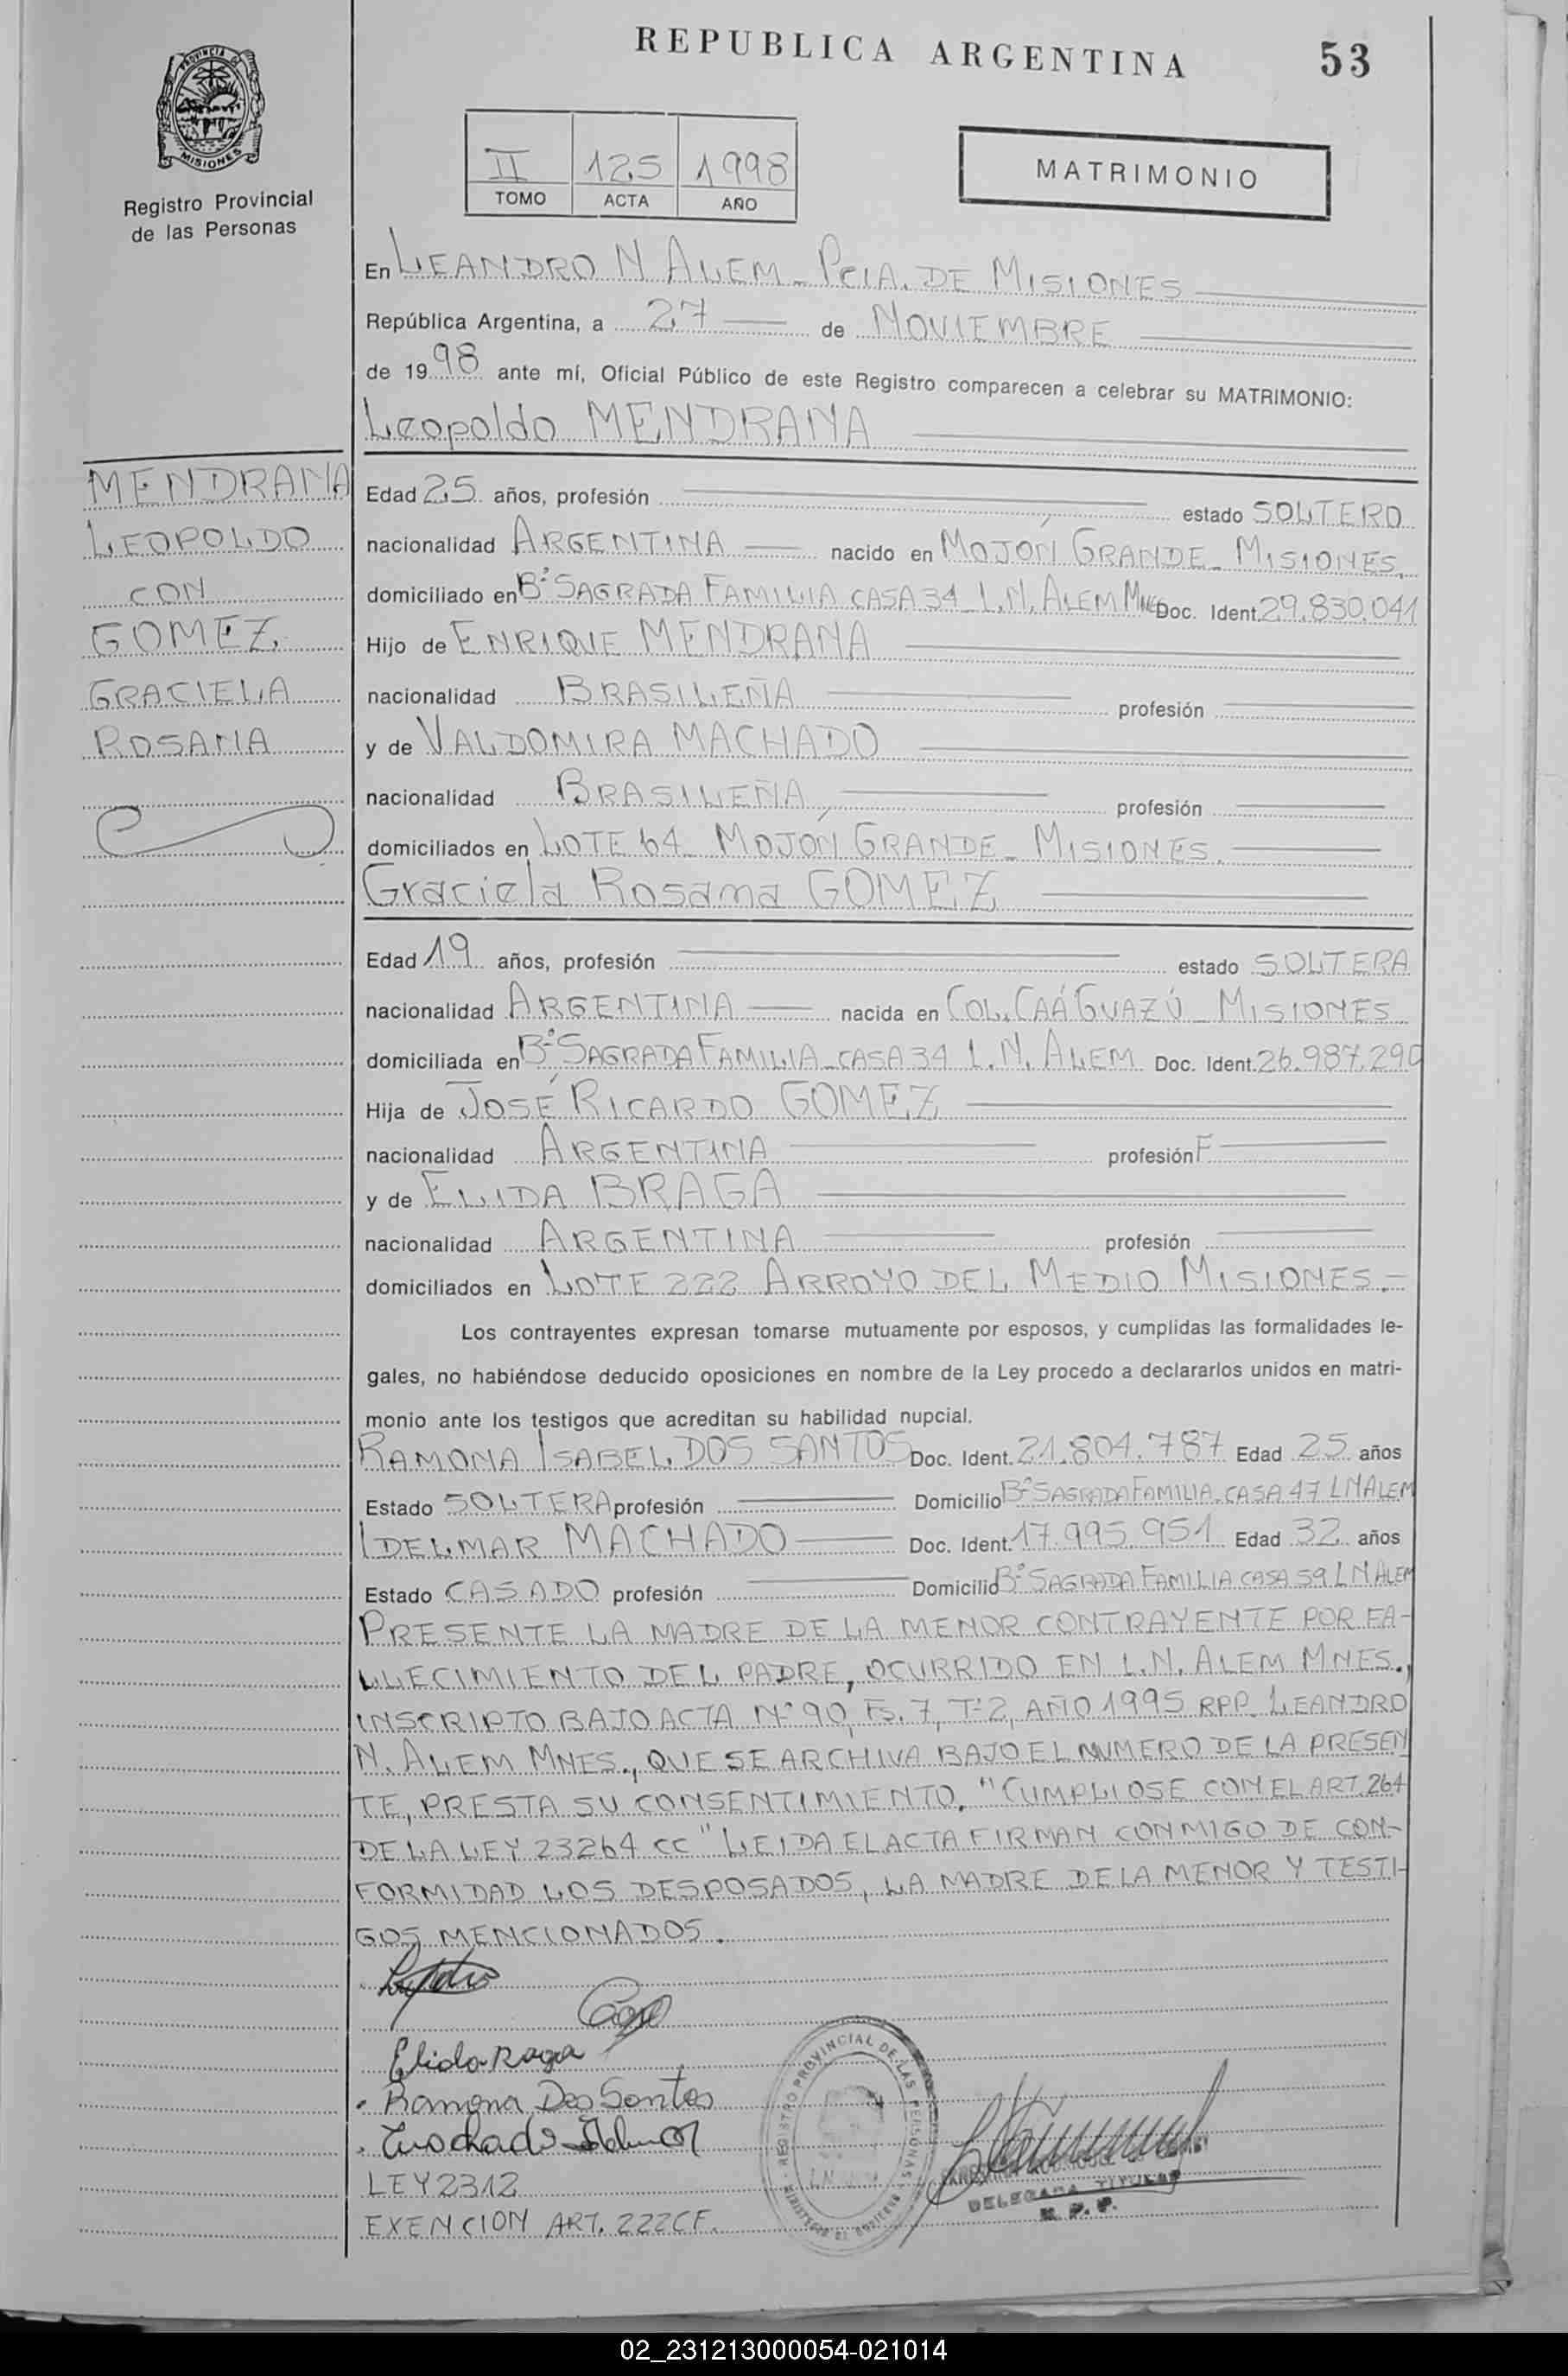 REPUBLICA ARGENTINA
53
PROVINCIA D
MISIONES
Registro Provincial
de las Personas
II 125 1998
TOMO ACTA AÑO
MATRIMONIO
En LEANDRO N ALEM - PCIA. DE MISIONES
República Argentina, a 27 de NOVIEMBRE
de 1998 ante mí, Oficial Público de este Registro comparecen a celebrar su MATRIMONIO:
Leopoldo MENDRANA
MENDRANA
LEOPOLDO
CON
GOMEZ
GRACIELA
ROSANA
Edad 25 años, profesión estado SOLTERO
nacionalidad ARGENTINA nacido en MOJÓN GRANDE - MISIONES.
domiciliado en Bº SAGRADA FAMILIA CASA 34 - L.N. ALEM MNES Doc. Ident. 29.830.041
Hijo de ENRIQUE MENDRANA
nacionalidad BRASILEÑA profesión
y de VALDOMIRA MACHADO
nacionalidad BRASILEÑA profesión
domiciliados en LOTE 64 - MOJÓN GRANDE - MISIONES.
Graciela Rosana GOMEZ
Edad 19 años, profesión estado SOLTERA
nacionalidad ARGENTINA nacida en COL. CAÁ GUAZÚ - MISIONES
domiciliada en Bº SAGRADA FAMILIA - CASA 34 L.N. ALEM Doc. Ident. 26.987.290
Hija de JOSÉ RICARDO GOMEZ
nacionalidad ARGENTINA profesión F
y de ELIDA BRAGA
nacionalidad ARGENTINA profesión
domiciliados en LOTE 222 ARROYO DEL MEDIO MISIONES.-
Los contrayentes expresan tomarse mutuamente por esposos, y cumplidas las formalidades le-
gales, no habiéndose deducido oposiciones en nombre de la Ley procedo a declararlos unidos en matri-
monio ante los testigos que acreditan su habilidad nupcial.
RAMONA ISABEL DOS SANTOS Doc. Ident. 21.804.787 Edad 25 años
Estado SOLTERA profesión Domicilio Bº SAGRADA FAMILIA - CASA 47 LN ALEM
IDELMAR MACHADO Doc. Ident. 17.995.951 Edad 32 años
Estado CASADO profesión Domicilio Bº SAGRADA FAMILIA CASA 59 LN ALEM
PRESENTE LA MADRE DE LA MENOR CONTRAYENTE POR FA-
LLECIMIENTO DEL PADRE, OCURRIDO EN L.N. ALEM MNES.,
INSCRIPTO BAJO ACTA Nº 90, Fs. 7, Tº 2, AÑO 1995 RPP. LEANDRO
N. ALEM MNES., QUE SE ARCHIVA BAJO EL NUMERO DE LA PRESEN
TE, PRESTA SU CONSENTIMIENTO. "CUMPLIOSE CON EL ART. 264
DE LA LEY 23264 CC" LEIDA EL ACTA FIRMAN CONMIGO DE CON-
FORMIDAD LOS DESPOSADOS, LA MADRE DE LA MENOR Y TESTI-
GOS MENCIONADOS.
Elida Raga
Ramona Dos Santos
LEY 2312
EXENCION ART. 222 CF.
REGISTRO PROVINCIAL DE LAS PERSONAS
DELEGADA TITULAR
R. P. P.
02_231213000054-021014